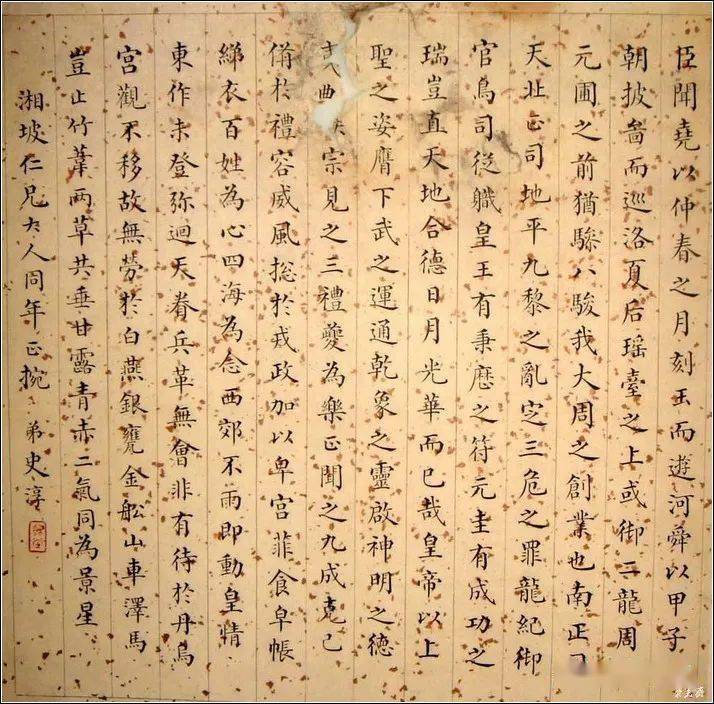 臣聞堯以仲春之月刻玉而遊河舜以甲子
朝披啚而巡洛夏后瑶臺之上或御二龍周
元圃之前猶驂八駿我大周之創業也南正司
天北正司地平九黎之亂定三危之罪龍紀御
官鳥司從職皇王有秉歷之符元圭有成功之
瑞豈直天地合德日月光華而已哉皇帝以上
聖之姿膺下武之運通乾象之靈啟神明之德
典宗見之三禮夔為樂正聞之九成克己
備於禮容威風揔於戎政加以卑宫菲食皁帳
綈衣百姓為心四海為念西郊不雨即動皇情
東作未登弥迴天眷兵革無會非有待於丹烏
宫觀不移故無勞於白燕銀甕金舩山車澤馬
豈止竹葦兩草共垂甘露青赤二氣同為景星
湘坡仁兄大人同年正捥 弟史淳